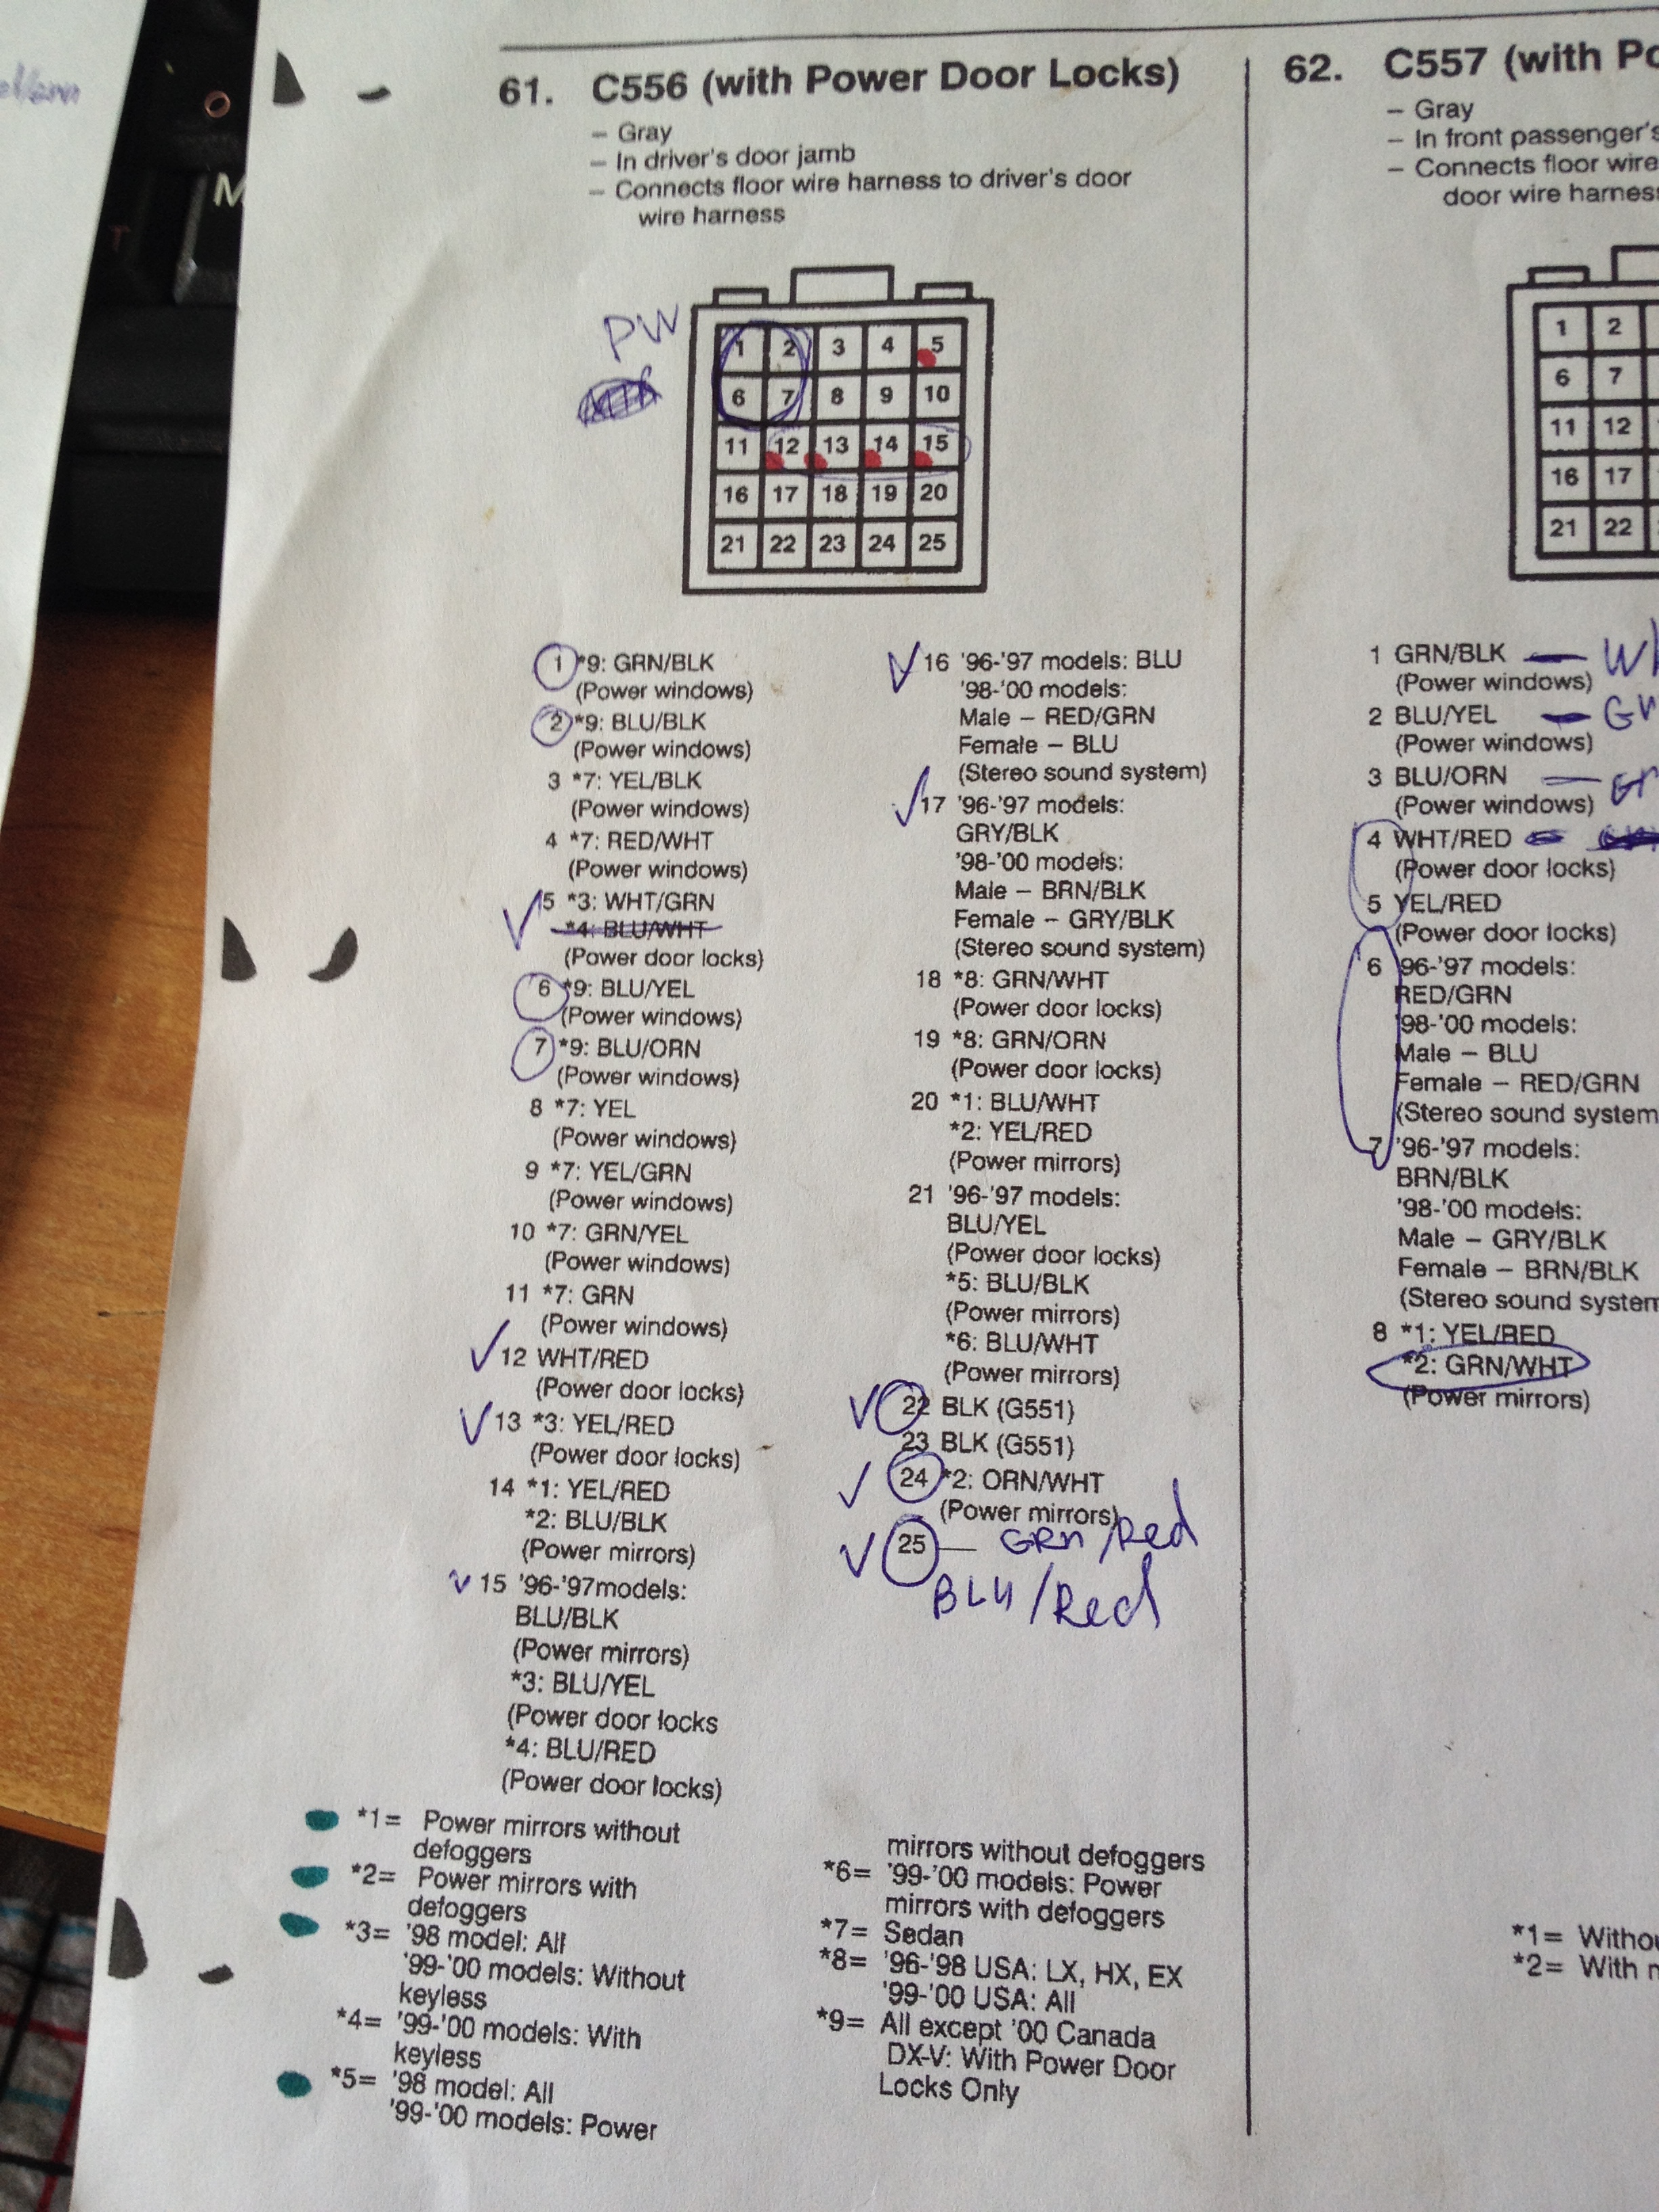 61. C556 (with Power Door Locks)
– Gray
– In driver's door jamb
– Connects floor wire harness to driver's door
wire harness
PW
1 2 3 4 5
6 7 8 9 10
11 12 13 14 15
16 17 18 19 20
21 22 23 24 25
1 *9: GRN/BLK
(Power windows)
2 *9: BLU/BLK
(Power windows)
3 *7: YEL/BLK
(Power windows)
4 *7: RED/WHT
(Power windows)
5 *3: WHT/GRN
*4: BLU/WHT
(Power door locks)
6 *9: BLU/YEL
(Power windows)
7 *9: BLU/ORN
(Power windows)
8 *7: YEL
(Power windows)
9 *7: YEL/GRN
(Power windows)
10 *7: GRN/YEL
(Power windows)
11 *7: GRN
(Power windows)
12 WHT/RED
(Power door locks)
13 *3: YEL/RED
(Power door locks)
14 *1: YEL/RED
*2: BLU/BLK
(Power mirrors)
15 '96-'97models:
BLU/BLK
(Power mirrors)
*3: BLU/YEL
(Power door locks
*4: BLU/RED
(Power door locks)
16 '96-'97 models: BLU
'98-'00 models:
Male – RED/GRN
Female – BLU
(Stereo sound system)
17 '96-'97 models:
GRY/BLK
'98-'00 models:
Male – BRN/BLK
Female – GRY/BLK
(Stereo sound system)
18 *8: GRN/WHT
(Power door locks)
19 *8: GRN/ORN
(Power door locks)
20 *1: BLU/WHT
*2: YEL/RED
(Power mirrors)
21 '96-'97 models:
BLU/YEL
(Power door locks)
*5: BLU/BLK
(Power mirrors)
*6: BLU/WHT
(Power mirrors)
22 BLK (G551)
23 BLK (G551)
24 *2: ORN/WHT
(Power mirrors)
25 — GRN/Red
BLU/Red
*1= Power mirrors without
defoggers
*2= Power mirrors with
defoggers
*3= '98 model: All
'99-'00 models: Without
keyless
*4= '99-'00 models: With
keyless
*5= '98 model: All
'99-'00 models: Power
mirrors without defoggers
*6= '99-'00 models: Power
mirrors with defoggers
*7= Sedan
*8= '96-'98 USA: LX, HX, EX
'99-'00 USA: All
*9= All except '00 Canada
DX-V: With Power Door
Locks Only
62. C557 (with
– Gray
– In front passenger's
– Connects floor wire
door wire
1 2
6 7
11 12
16 17
21 22
1 GRN/BLK —
(Power windows)
2 BLU/YEL —
(Power windows)
3 BLU/ORN —
(Power windows)
4 WHT/RED
(Power door locks)
5 YEL/RED
(Power door locks)
6 '96-'97 models:
RED/GRN
'98-'00 models:
Male – BLU
Female – RED/GRN
(Stereo sound system
7 '96-'97 models:
BRN/BLK
'98-'00 models:
Male – GRY/BLK
Female – BRN/BLK
(Stereo sound
8 *1: YEL/RED
*2: GRN/WHT
(Power mirrors)
*1=
*2= With